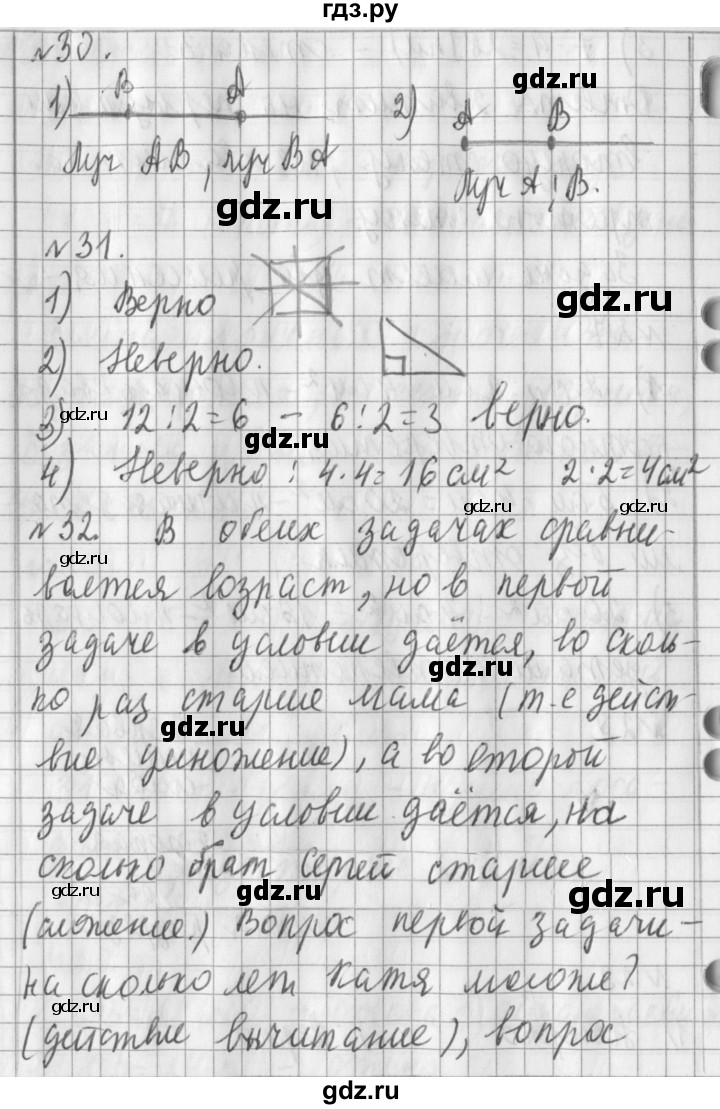 гдз.ру
№30.
1) B A 2) A B
gdz.ru
Луч AB, луч BA
Луч A; B.
gdz.ru
№31.
1) Верно
gdz.ru
2) Неверно.
gdz.ru
3) 12:2=6 – 6:2=3 верно.
gdz.ru
4) Неверно: 4·4=16 см² 2·2=4см²
gdz.ru
№32. В обеих задачах сравни-
gdz.ru
вается возраст, но в первой
задаче в условии даётся, во сколь-
gdz.ru
ко раз старше мама (т-е дейст-
gdz.ru
вие умножение), а во второй
задаче в условии даётся, на
сколько брат Сергей старше
gdz.ru gdz.ru gdz.ru
(сложение.) Вопрос первой задачи –
на сколько лет Катя моложе?
gdz.ru
(действие вычитание), вопрос
gdz.ru